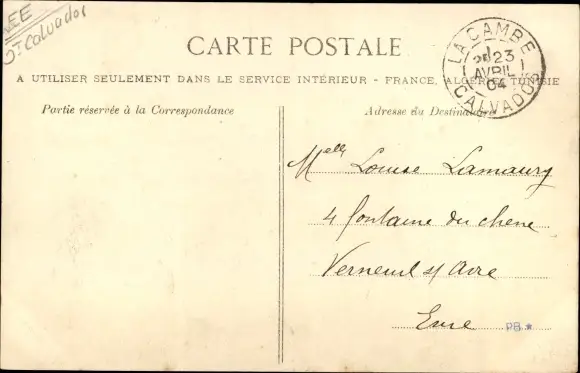 EE
St Calvados
CARTE POSTALE
A UTILISER SEULEMENT DANS LE SERVICE INTÉRIEUR - FRANCE, ALGÉRIE, TUNISIE
LA CAMBE
23
AVRIL
04
CALVADOS
Partie réservée à la Correspondance
Adresse du Destinataire
Melle Louise Lamaury
4 fontaine du chene
Verneuil s/ Avre
Eure
PB *